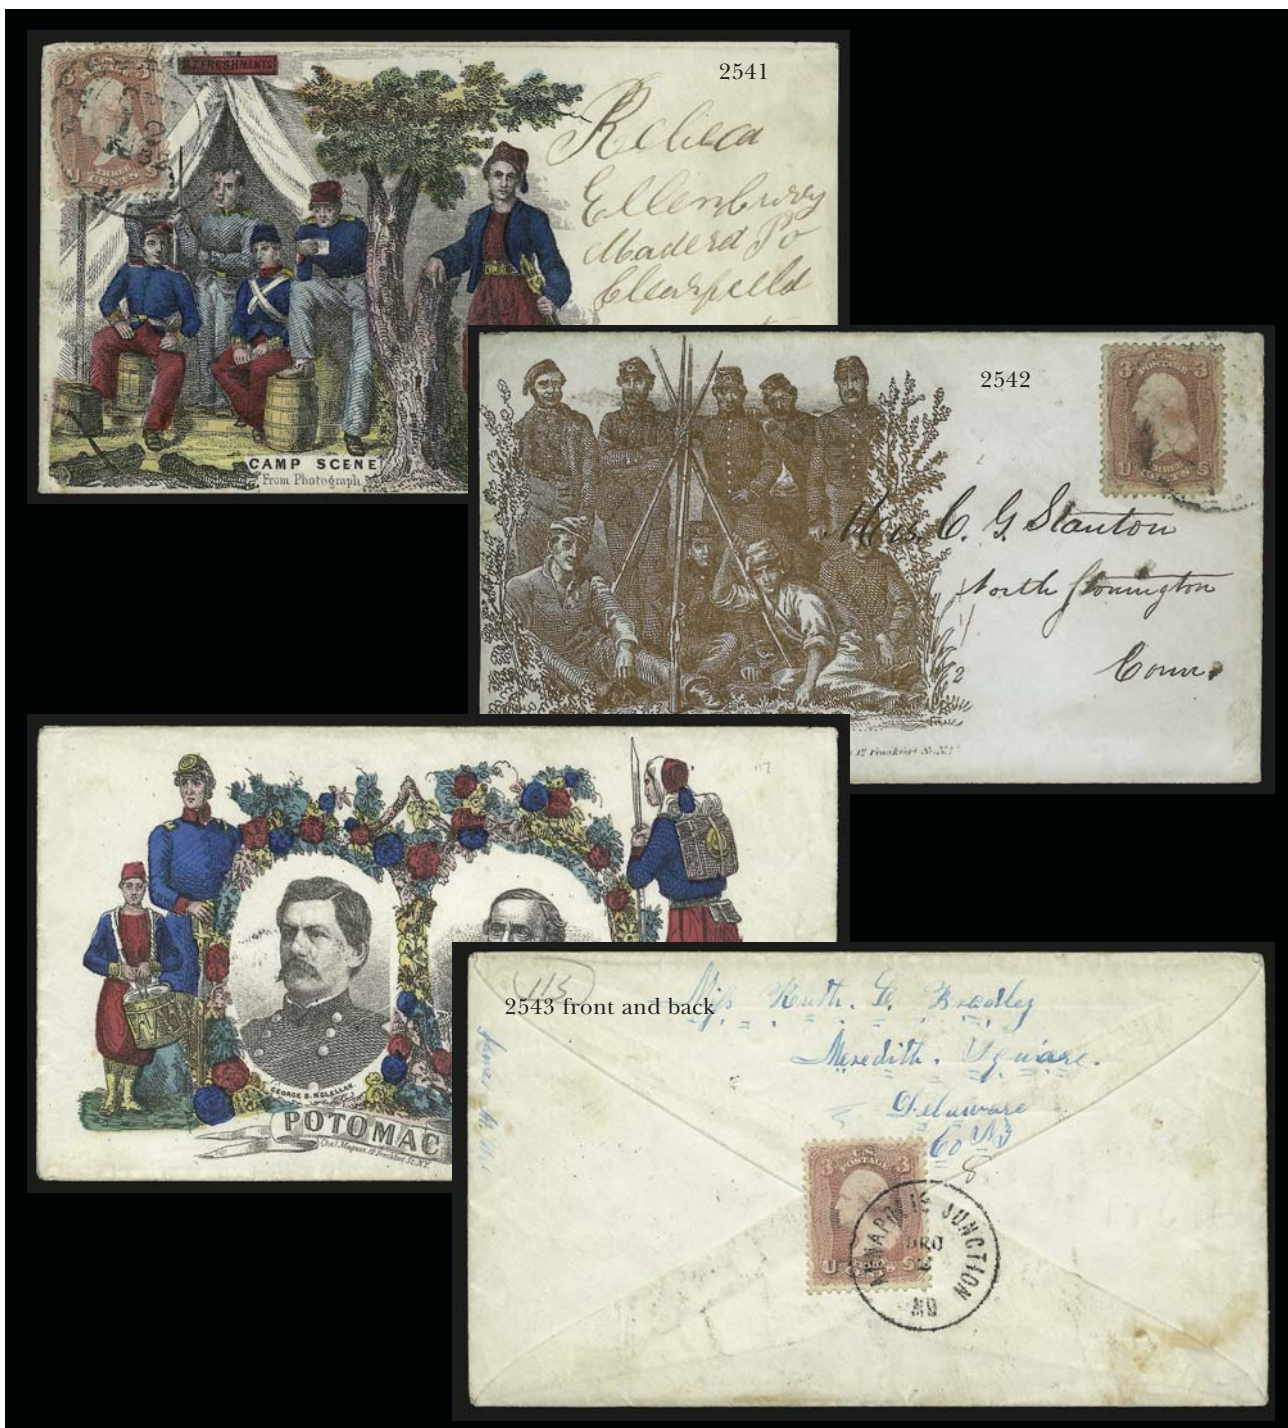 2541
REFRESHMENTS
3 3
U THREE CENTS S
Rebeca
Ellenburg
Madera Po
Clearfield
CAMP SCENE
From Photograph.
2542
3 3
U THREE CENTS S
Mrs. C. G. Stanton
North Stonington
Conn.
2
12 Frankfort St. N.Y.
GEORGE B. McCLELLAN.
POTOMAC
Chas. Magnus, 12 Frankfort St. N.Y.
115
2543 front and back
Miss Ruth. Bradley
Meredith. Square.
Delaware
Co NY
8
U.S.
POSTAGE
3 3
U THREE CENTS S
ANNAPOLIS JUNCTION
MD